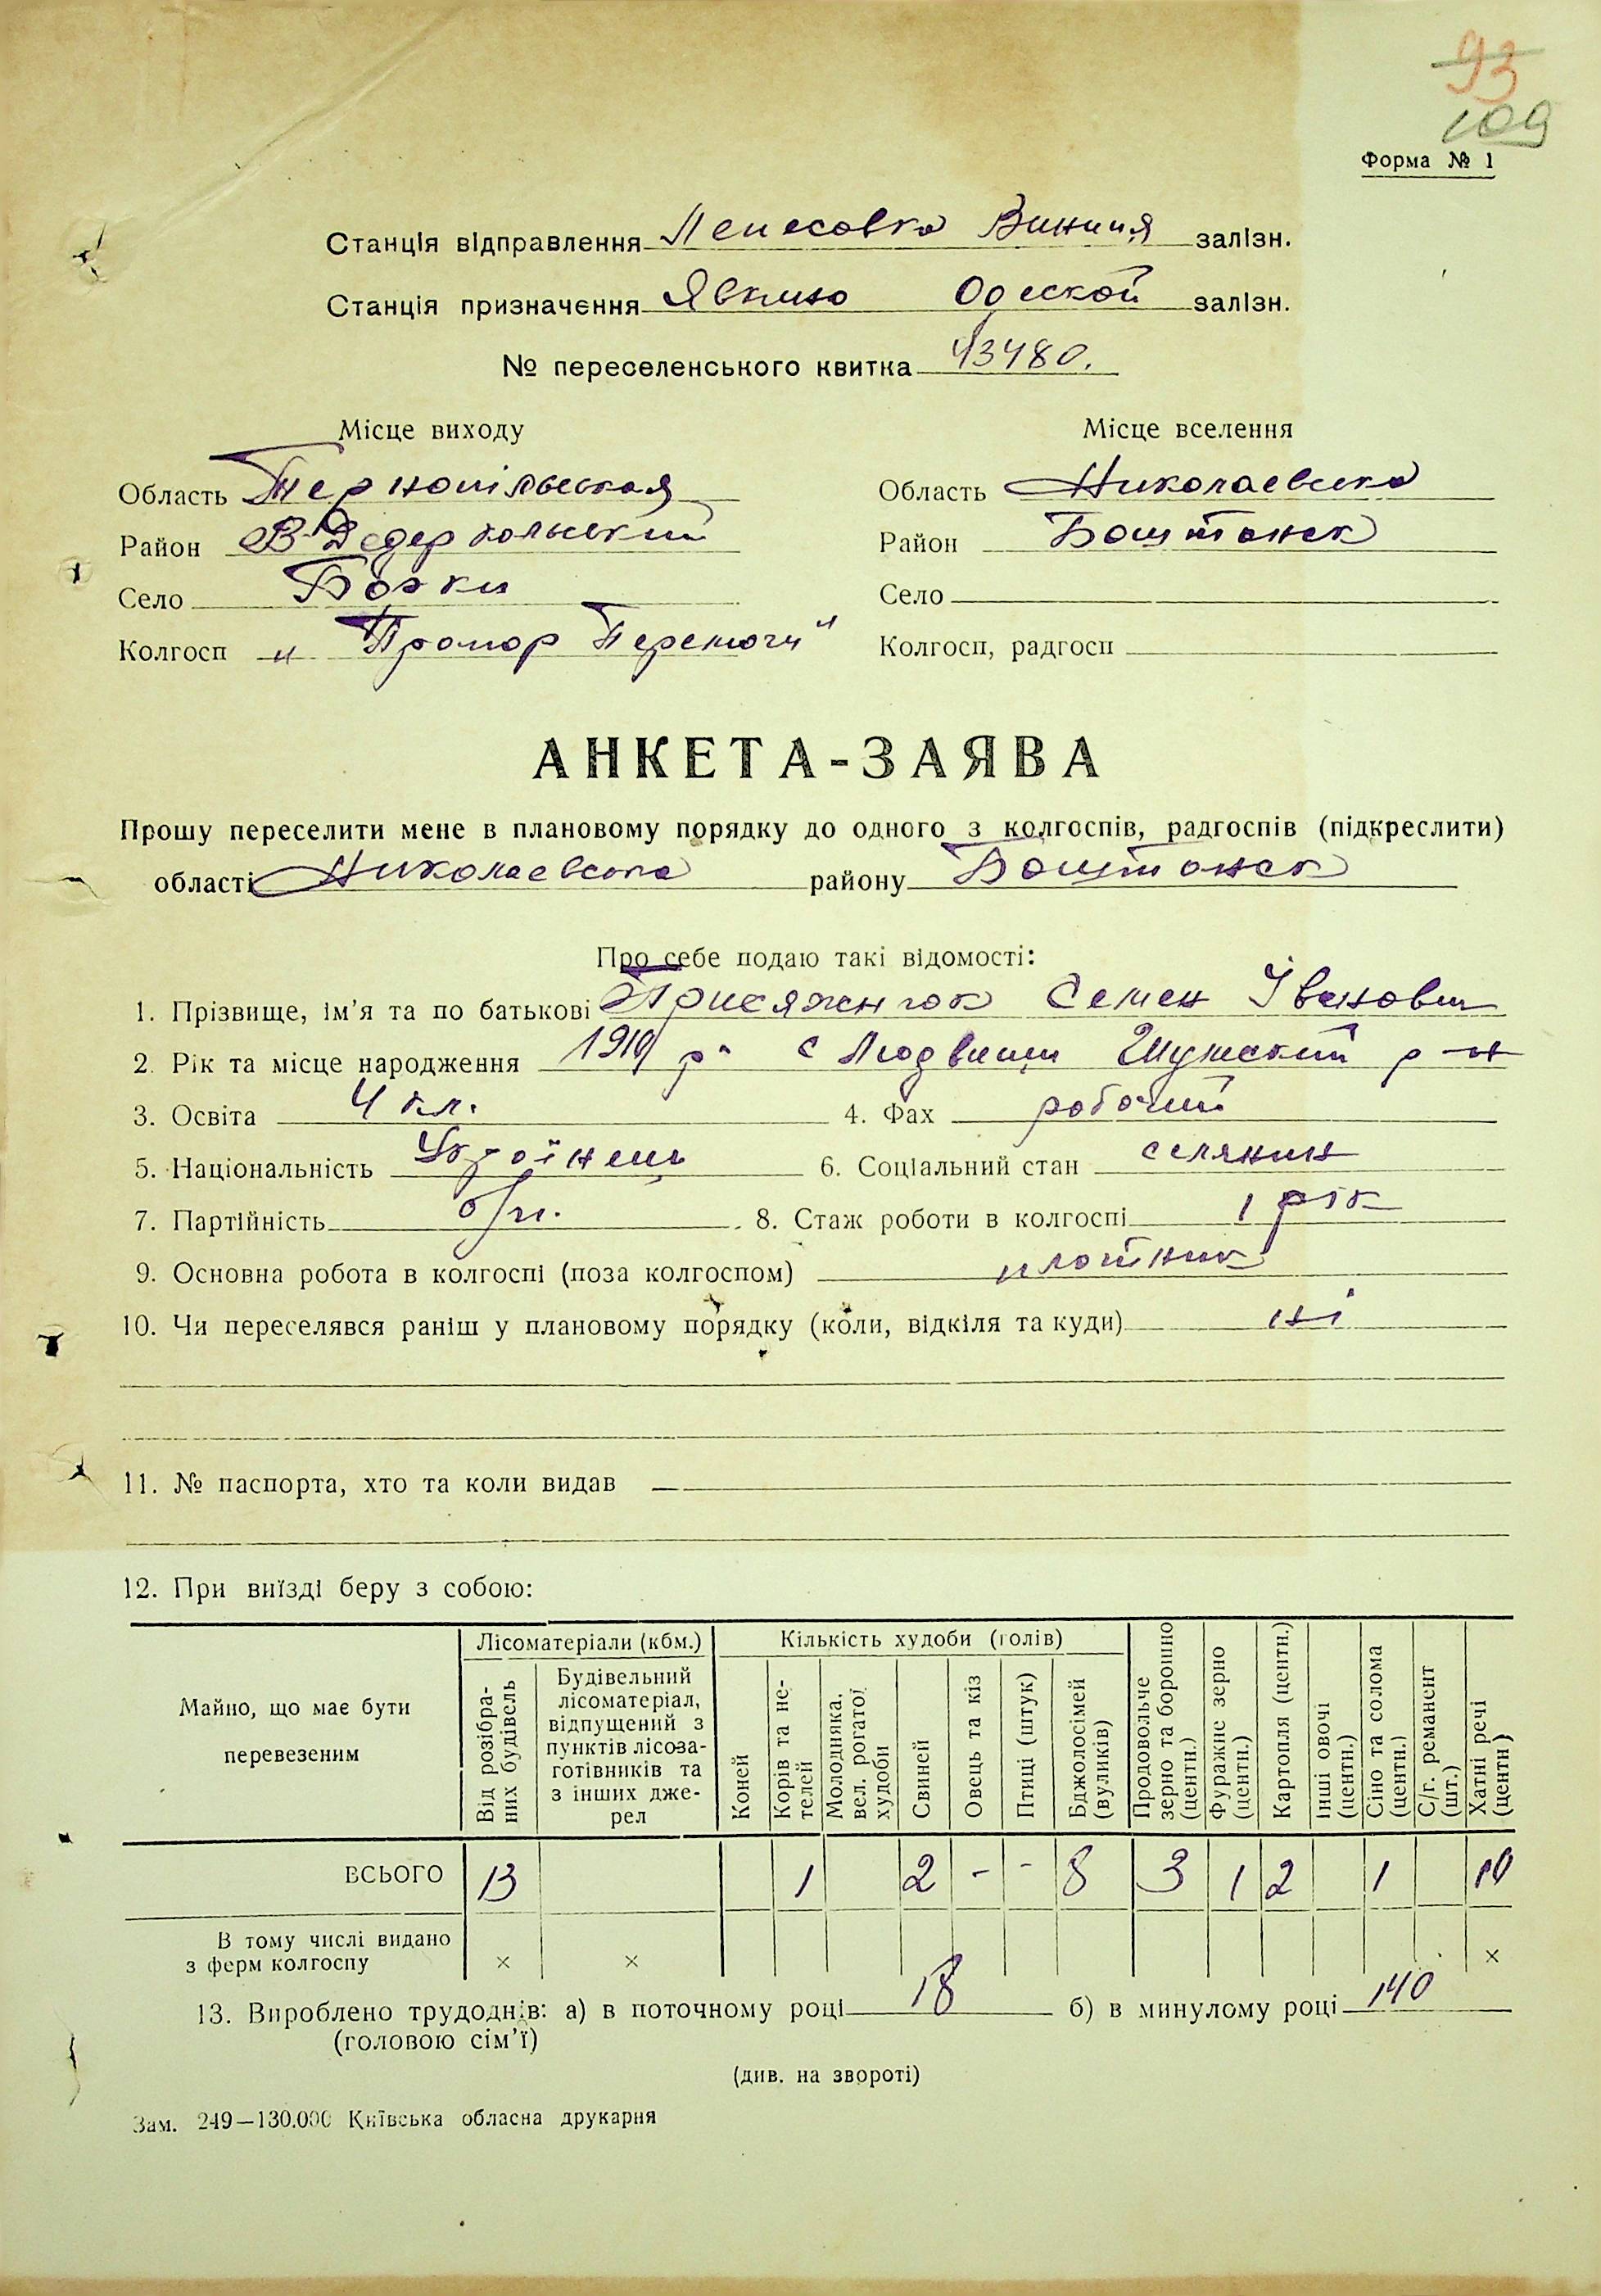 93
109
Форма № 1
Станція відправлення Лепесовка Винниця залізн.
Станція призначення Явкино Одеской залізн.
№ переселенського квитка 43480.
Місце виходу Місце вселення
Область Тернопільская Область Николаевска
Район В-Дедеркольский Район Баштанск
Село Боржи Село
Колгосп „Прапор Перемоги" Колгосп, радгосп
АНКЕТА-ЗАЯВА
Прошу переселити мене в плановому порядку до одного з колгоспів, радгоспів (підкреслити)
області Николаевска району Баштанск
Про себе подаю такі відомості:
1. Прізвище, ім'я та по батькові Присяжнюк Семен Іванович
2. Рік та місце народження 1910 р. с Людвищи Шумский р-н
3. Освіта 4 кл. 4. Фах робочий
5. Національність Українець 6. Соціальний стан селянин
7. Партійність б/п. 8. Стаж роботи в колгоспі 1 рік
9. Основна робота в колгоспі (поза колгоспом) плотник
10. Чи переселявся раніш у плановому порядку (коли, відкіля та куди) ні
11. № паспорта, хто та коли видав —
12. При виїзді беру з собою:
Майно, що має бути перевезеним
Лісоматеріали (кбм.)
Від розібраних будівель
Будівельний лісоматеріал, відпущений з пунктів лісозаготівників та з інших джерел
Кількість худоби (голів)
Коней
Корів та нетелей
Молодняка, вел. рогатої худоби
Свиней
Овець та кіз
Птиці (штук)
Бджолосімей (вуликів)
Продовольче зерно та борошно (центн.)
Фуражне зерно (центн.)
Картопля (центн.)
Інші овочі (центн.)
Сіно та солома (центн.)
С/г. реманент (шт.)
Хатні речі (центн)
ВСЬОГО 13 1 2 - - 8 3 1 2 1 10
В тому числі видано
з ферм колгоспу × × ×
13. Вироблено трудоднів: а) в поточному році 18 б) в минулому році 140
(головою сім'ї)
(див. на звороті)
Зам. 249—130.000 Київська обласна друкарня